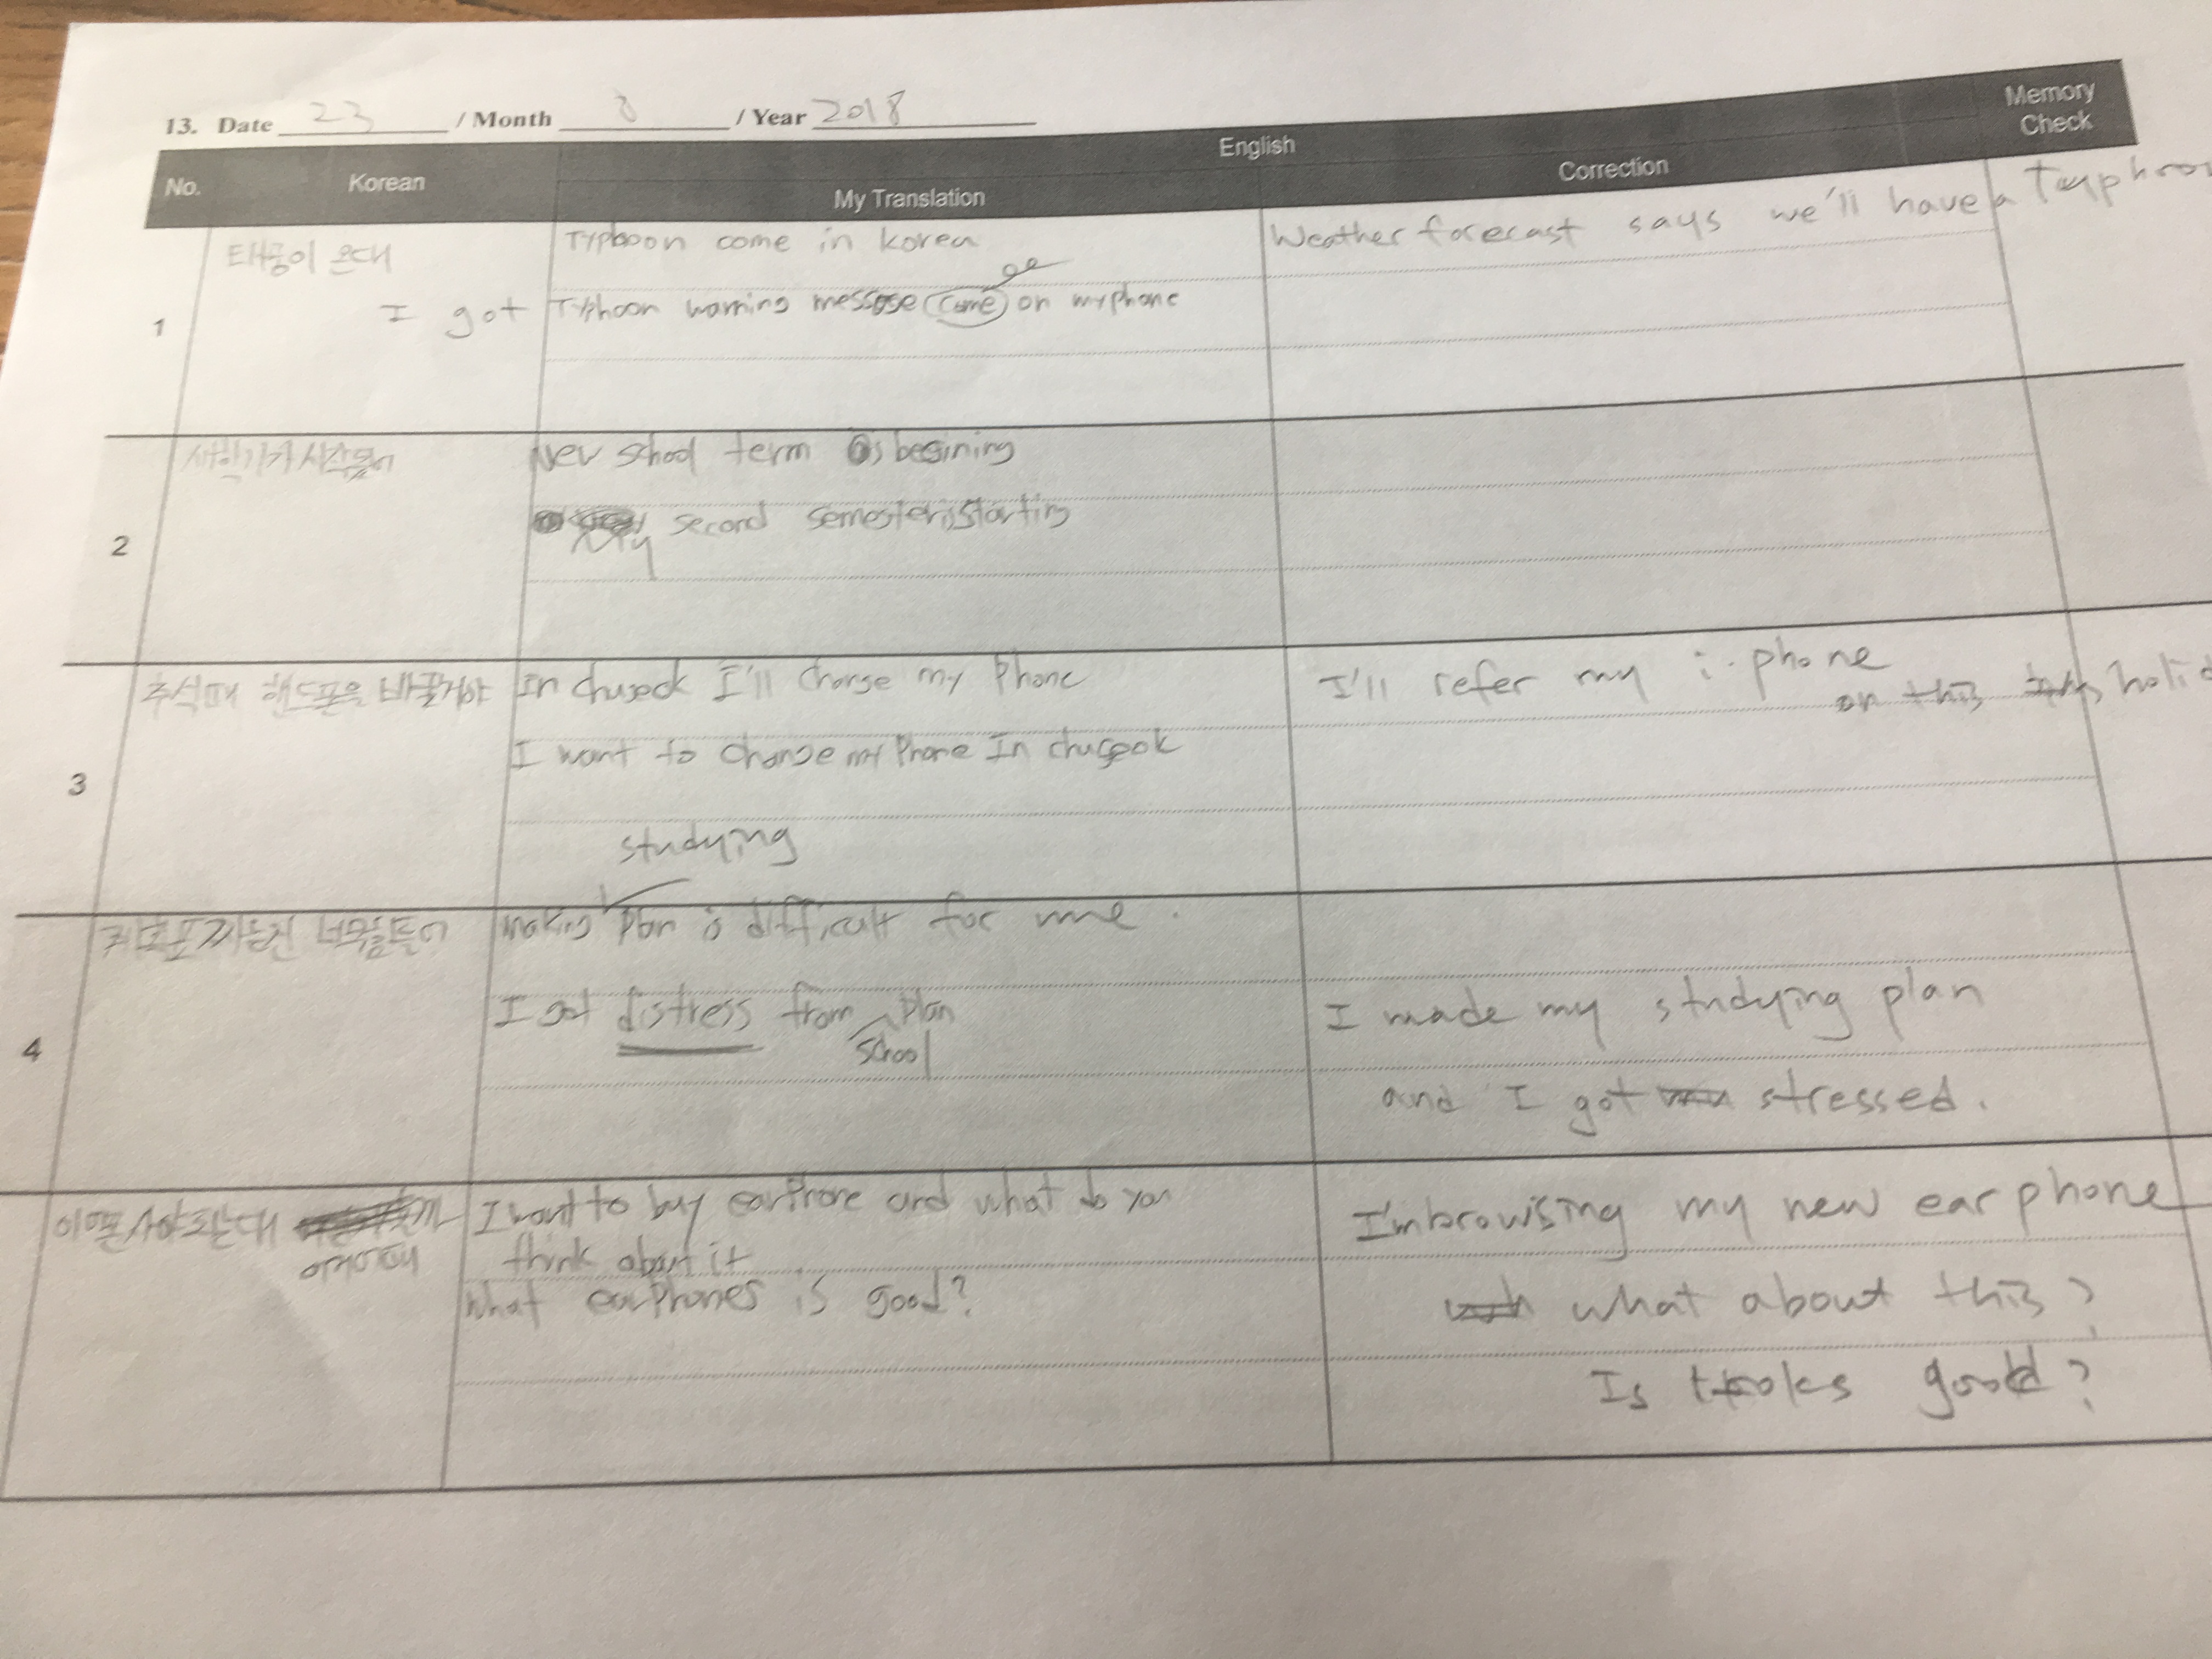 13. Date 23 / Month 8 / Year 2018
No. Korean English Memory Check
My Translation Correction
1
태풍이 온대
Typhoon come in korea
I got Typhoon warning message came on my phone
Weather forecast says we'll have a Tayphroo
2
새학기가 시작됐어
New school term is begining
My second semester is starting
3
추석때 핸드폰을 바꿀거야
In chuseck I'll change my Phone
I want to change my Phone In chuseok
I'll refer my i.phone
on this holid
4
studying
making plan is difficult for me.
I got distress from plan
school
I made my studying plan
and I got stressed.
이어폰 사야 되는데
어때
I want to buy earphone and what do you
think about it
What earphones is good?
I'm browising my new ear phone
what about this?
Is good?